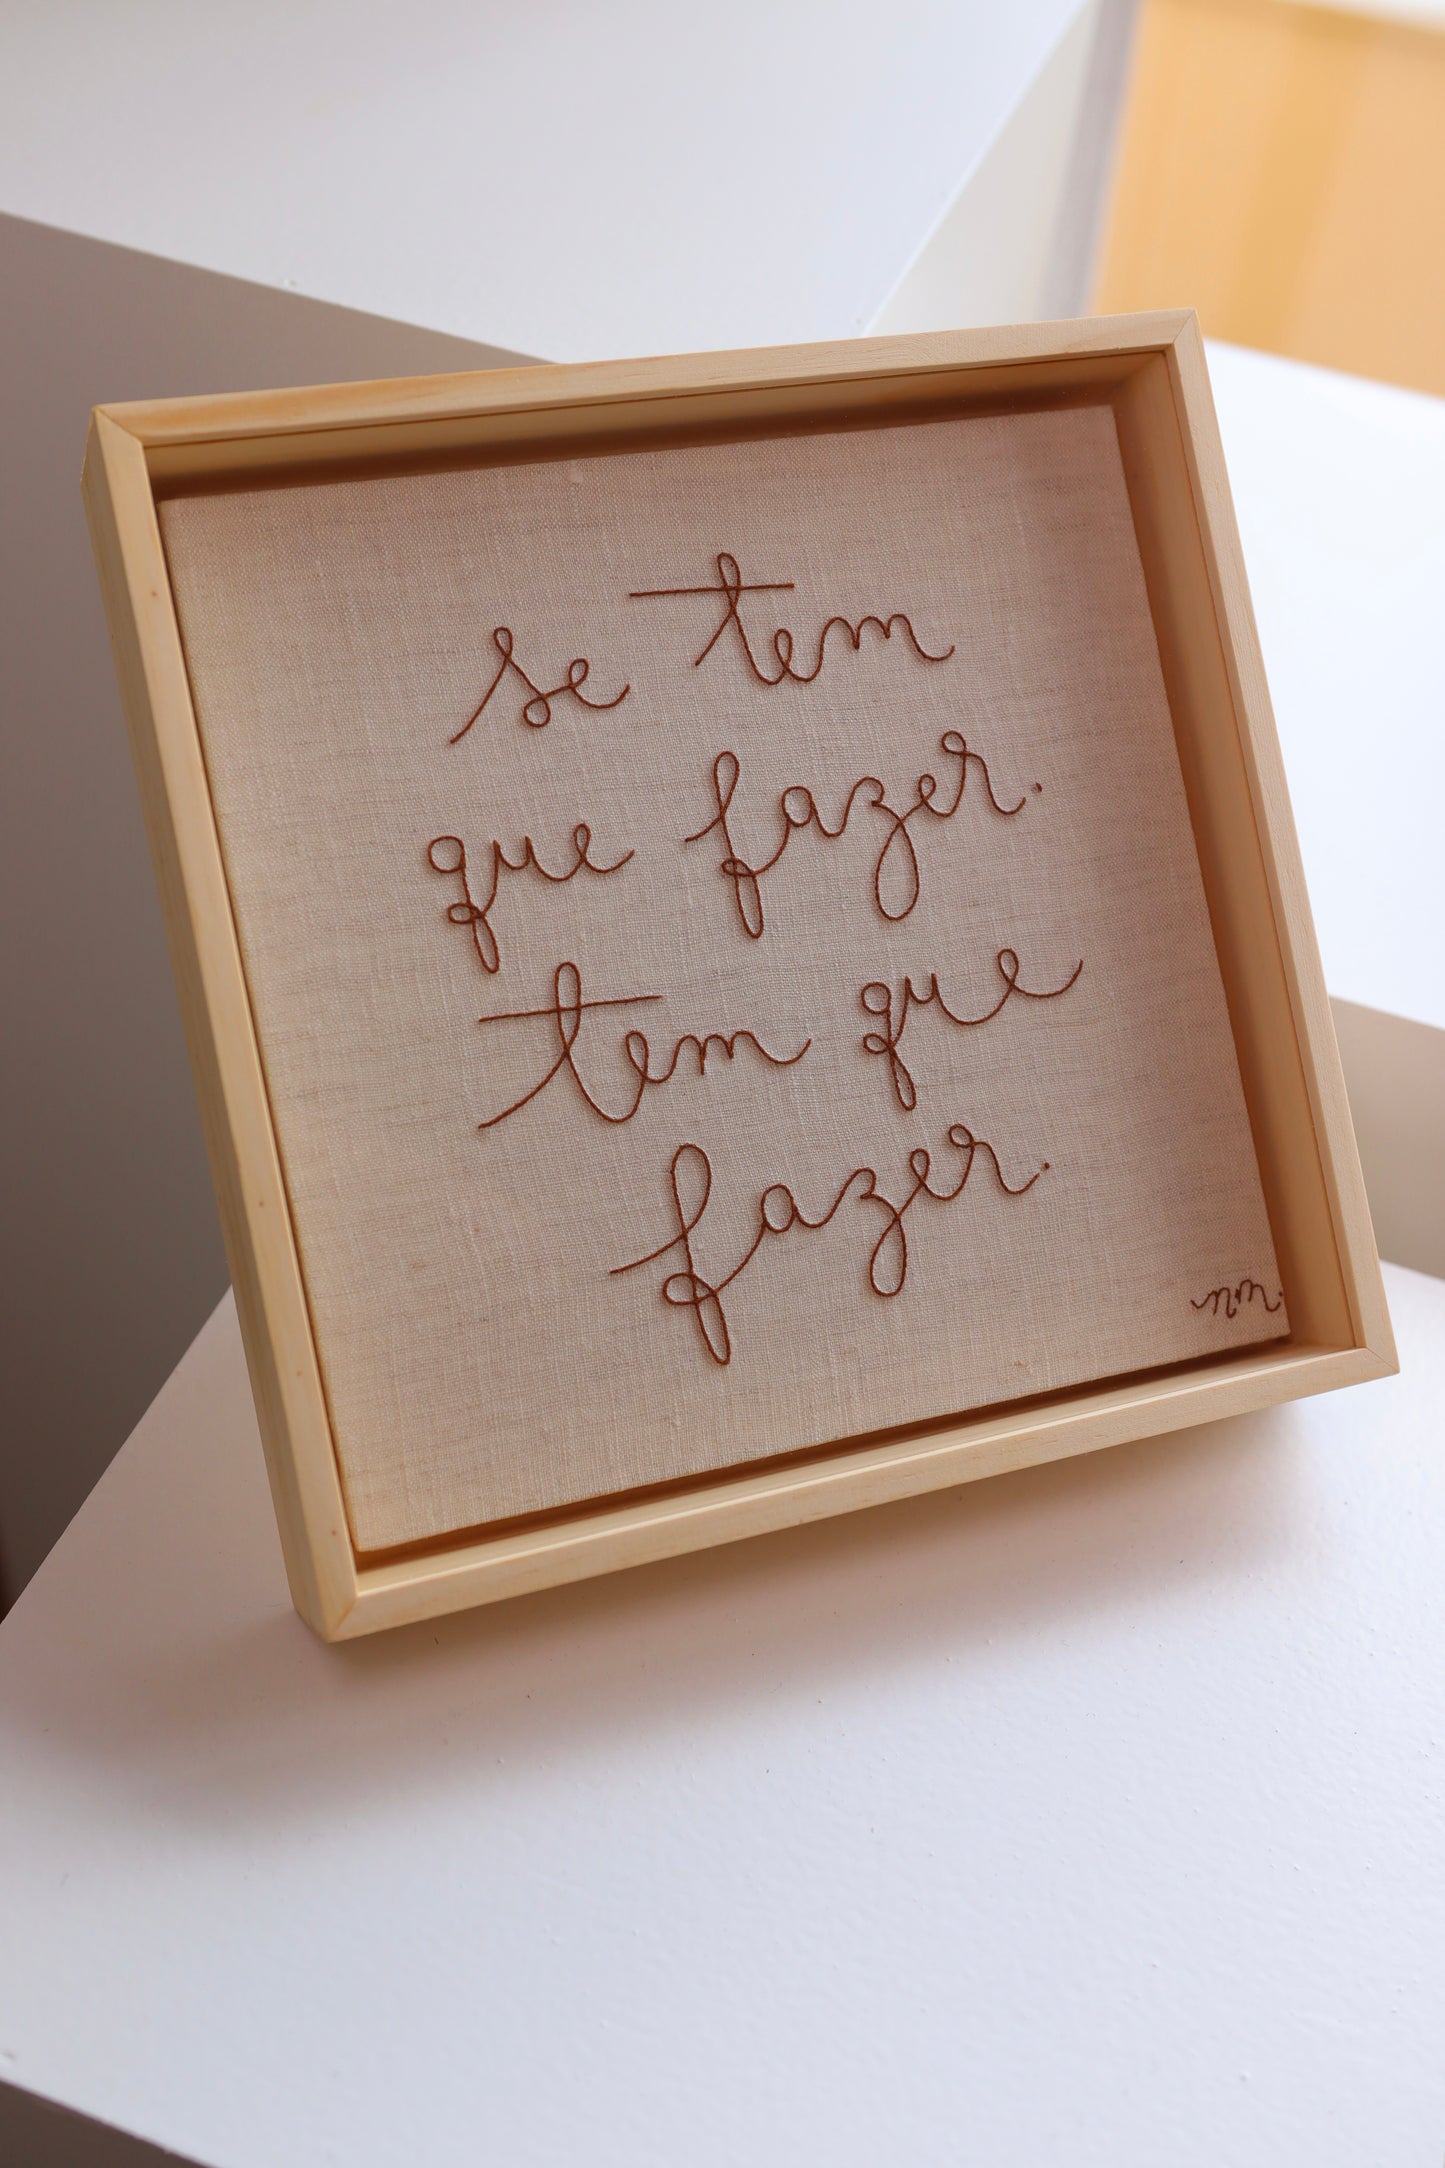 se tem
que fazer.
tem que
fazer.
nm.